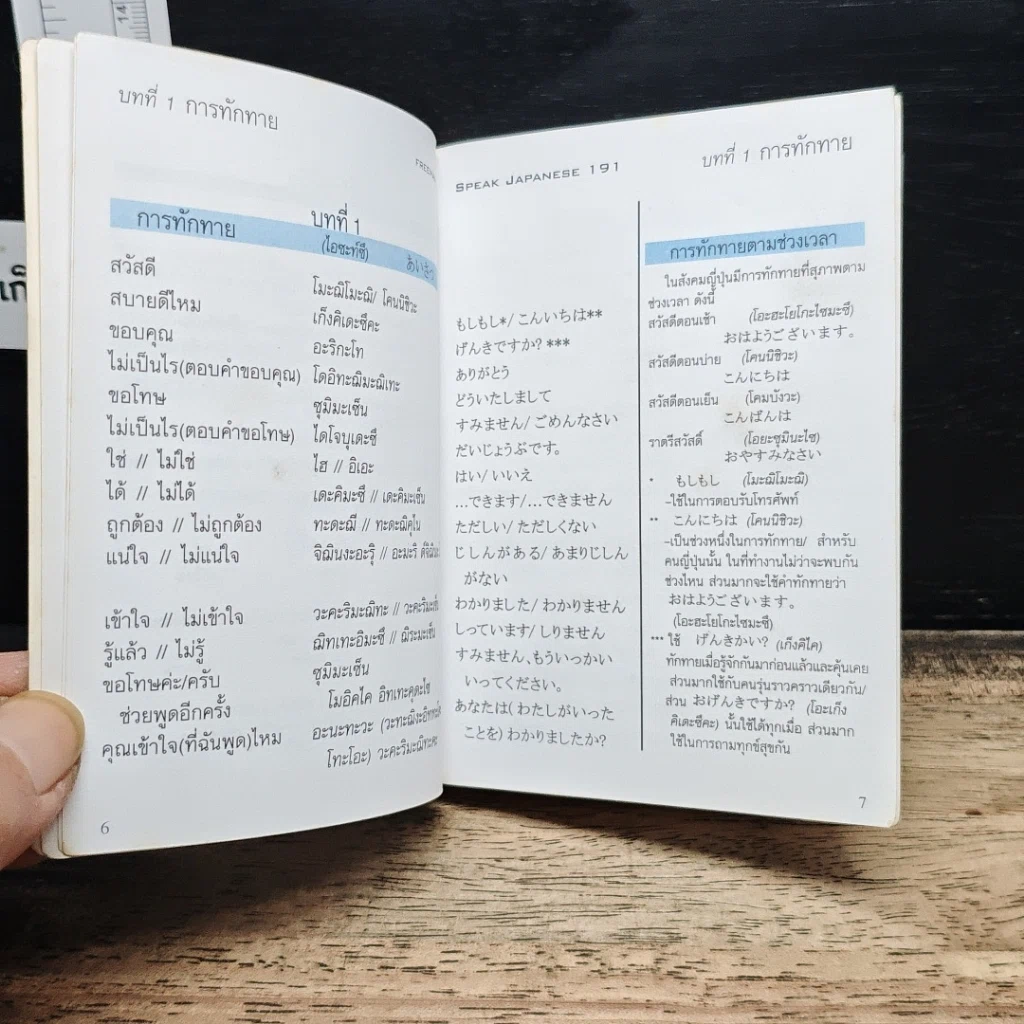 14
บทที่ 1 การทักทาย
การทักทาย
บทที่ 1
(ไอซะทัซึ)
あいさつ
สวัสดี
สบายดีไหม
ขอบคุณ
ไม่เป็นไร(ตอบคำขอบคุณ)
ขอโทษ
ไม่เป็นไร(ตอบคำขอโทษ)
ใช่ // ไม่ใช่
ได้ // ไม่ได้
ถูกต้อง // ไม่ถูกต้อง
แน่ใจ // ไม่แน่ใจ
เข้าใจ // ไม่เข้าใจ
รู้แล้ว // ไม่รู้
ขอโทษค่ะ/ครับ
ช่วยพูดอีกครั้ง
คุณเข้าใจ(ที่ฉันพูด)ไหม
โมะฌิโมะฌิ/ โคนนิชิวะ
เก็งคิเดะซึคะ
อะริกะโท
โดอิทะฌิมะฌิเทะ
ซุมิมะเซ็น
ไดโจบุเดะซึ
ไฮ // อิเอะ
เดะคิมะซึ // เดะคิมะเซ็น
ทะดะฌี // ทะดะฌิคุไน
จิฌินงะอะรุ // อะมะริ
วะคะริมะฌิทะ // วะคะริมะเซ็น
ฌิทเทะอิมะซึ // ฌิริมะเซ็น
ซุมิมะเซ็น
โมอิคไค อิทเทะคุดะไซ
อะนะทะวะ
โทะโอะ) วะคะริมะฌิทะคะ
6
SPEAK JAPANESE 191
บทที่ 1 การทักทาย
もしもし*/ こんいちは**
げんきですか? ***
ありがとう
どういたしまして
すみません/ ごめんなさい
だいじょうぶです。
はい/ いいえ
...できます/...できません
ただしい/ ただしくない
じしんがある/ あまりじしん
がない
わかりました/ わかりません
しっています/ しりません
すみません、もういっかい
いってください。
あなたは( わたしがいった
ことを) わかりましたか?
การทักทายตามช่วงเวลา
ในสังคมญี่ปุ่นมีการทักทายที่สุภาพตาม
ช่วงเวลา ดังนี้
สวัสดีตอนเช้า (โอะฮะโยโกะไซมะซึ)
おはようございます。
สวัสดีตอนบ่าย (โคนนิชิวะ)
こんにちは
สวัสดีตอนเย็น (โคมบังวะ)
こんばんは
ราตรีสวัสดิ์ (โอยะซุมินะไซ)
おやすみなさい
* もしもし (โมะฌิโมะฌิ)
-ใช้ในการตอบรับโทรศัพท์
** こんにちは (โคนนิชิวะ)
-เป็นช่วงหนึ่งในการทักทาย/ สำหรับ
คนญี่ปุ่นนั้น ในที่ทำงานไม่ว่าจะพบกัน
ช่วงไหน ส่วนมากจะใช้คำทักทายว่า
おはようございます。
(โอะฮะโยโกะไซมะซึ)
*** ใช้ げんきかい? (เก็งคิไค)
ทักทายเมื่อรู้จักกันมาก่อนแล้วและคุ้นเคย
ส่วนมากใช้กับคนรุ่นราวคราวเดียวกัน/
ส่วน おげんきですか? (โอะเก็ง
คิเดะซึคะ) นั้นใช้ได้ทุกเมื่อ ส่วนมาก
ใช้ในการถามทุกข์สุขกัน
7